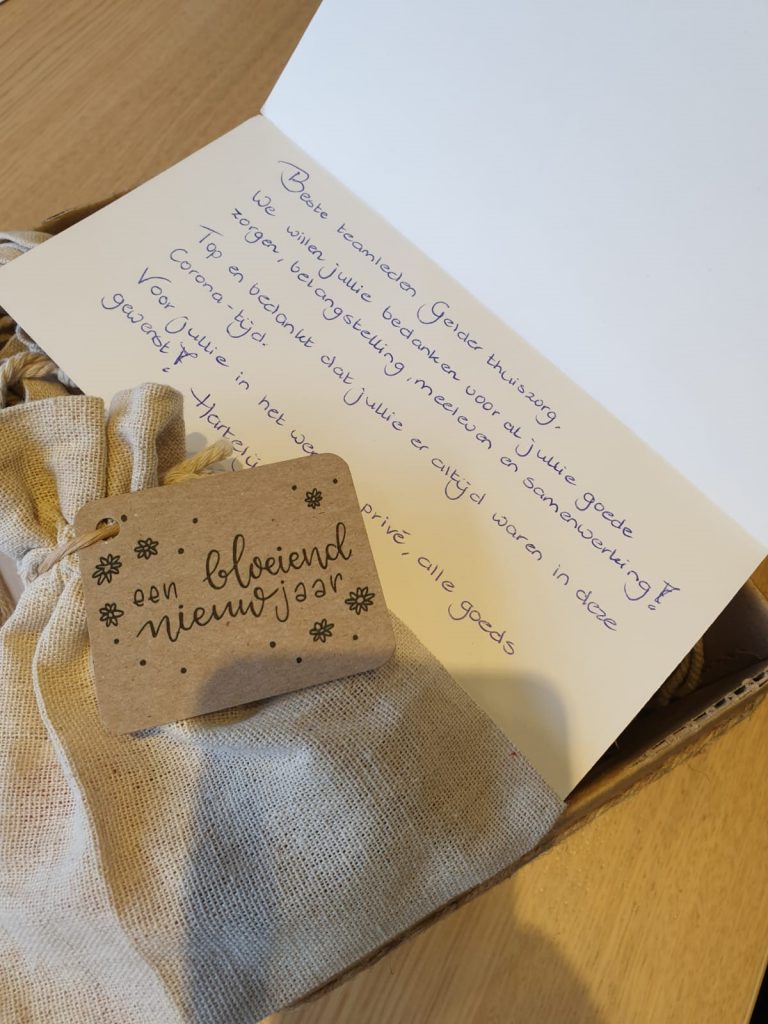 Beste teamleden Gelder thuiszorg,
We willen jullie bedanken voor al jullie goede
zorgen, belangstelling, meeleven en samenwerking!
Top en bedankt dat jullie er altijd waren in deze
Corona-tijd.
Voor jullie in het privé, alle goeds
gewenst!
een bloeiend
nieuwjaar